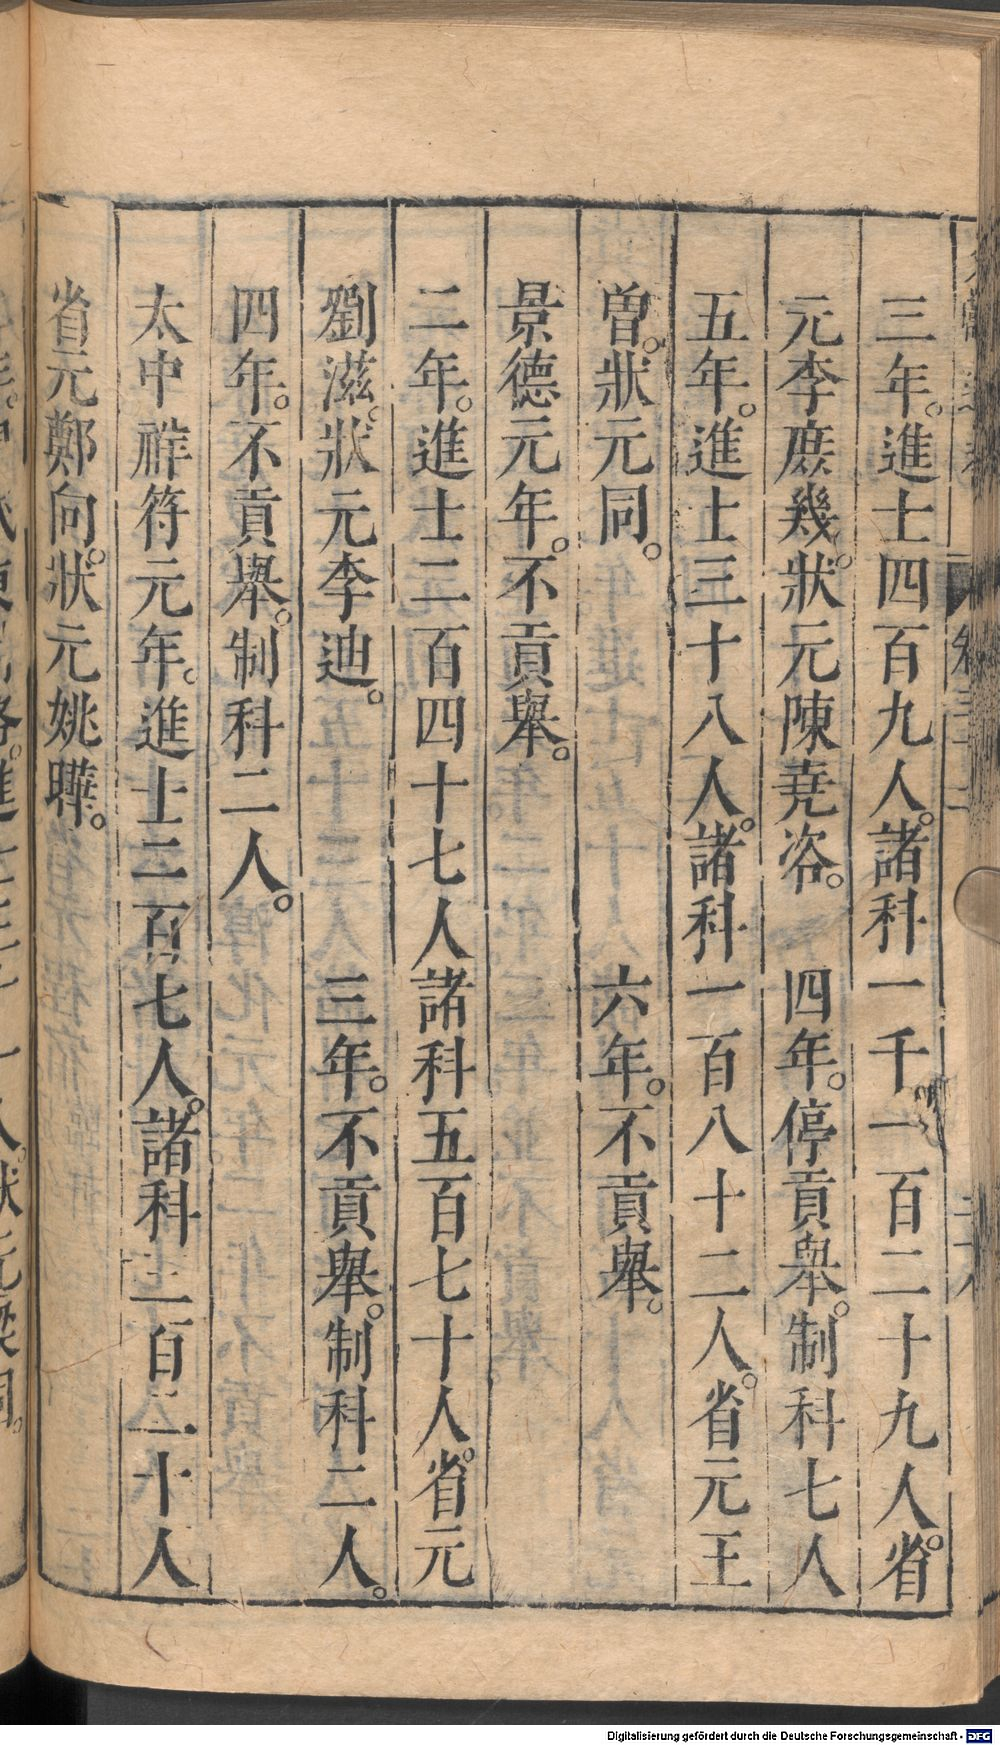 三年。進士四百九人。諸科一千一百二十九人。省
元李庶幾。狀元陳堯咨。　四年。停貢舉。制科七人
五年。進士三十八人。諸科一百八十二人。省元王
曾。狀元同。　六年。不貢舉。
景德元年。不貢舉。
二年。進士二百四十七人諸科五百七十人。省元
劉滋。狀元李迪。　三年。不貢舉。制科二人。
四年。不貢舉。制科二人。
太中祥符元年。進士二百七人。諸科三百二十人
省元鄭向。狀元姚曄。
Digitalisierung gefördert durch die Deutsche Forschungsgemeinschaft - DFG